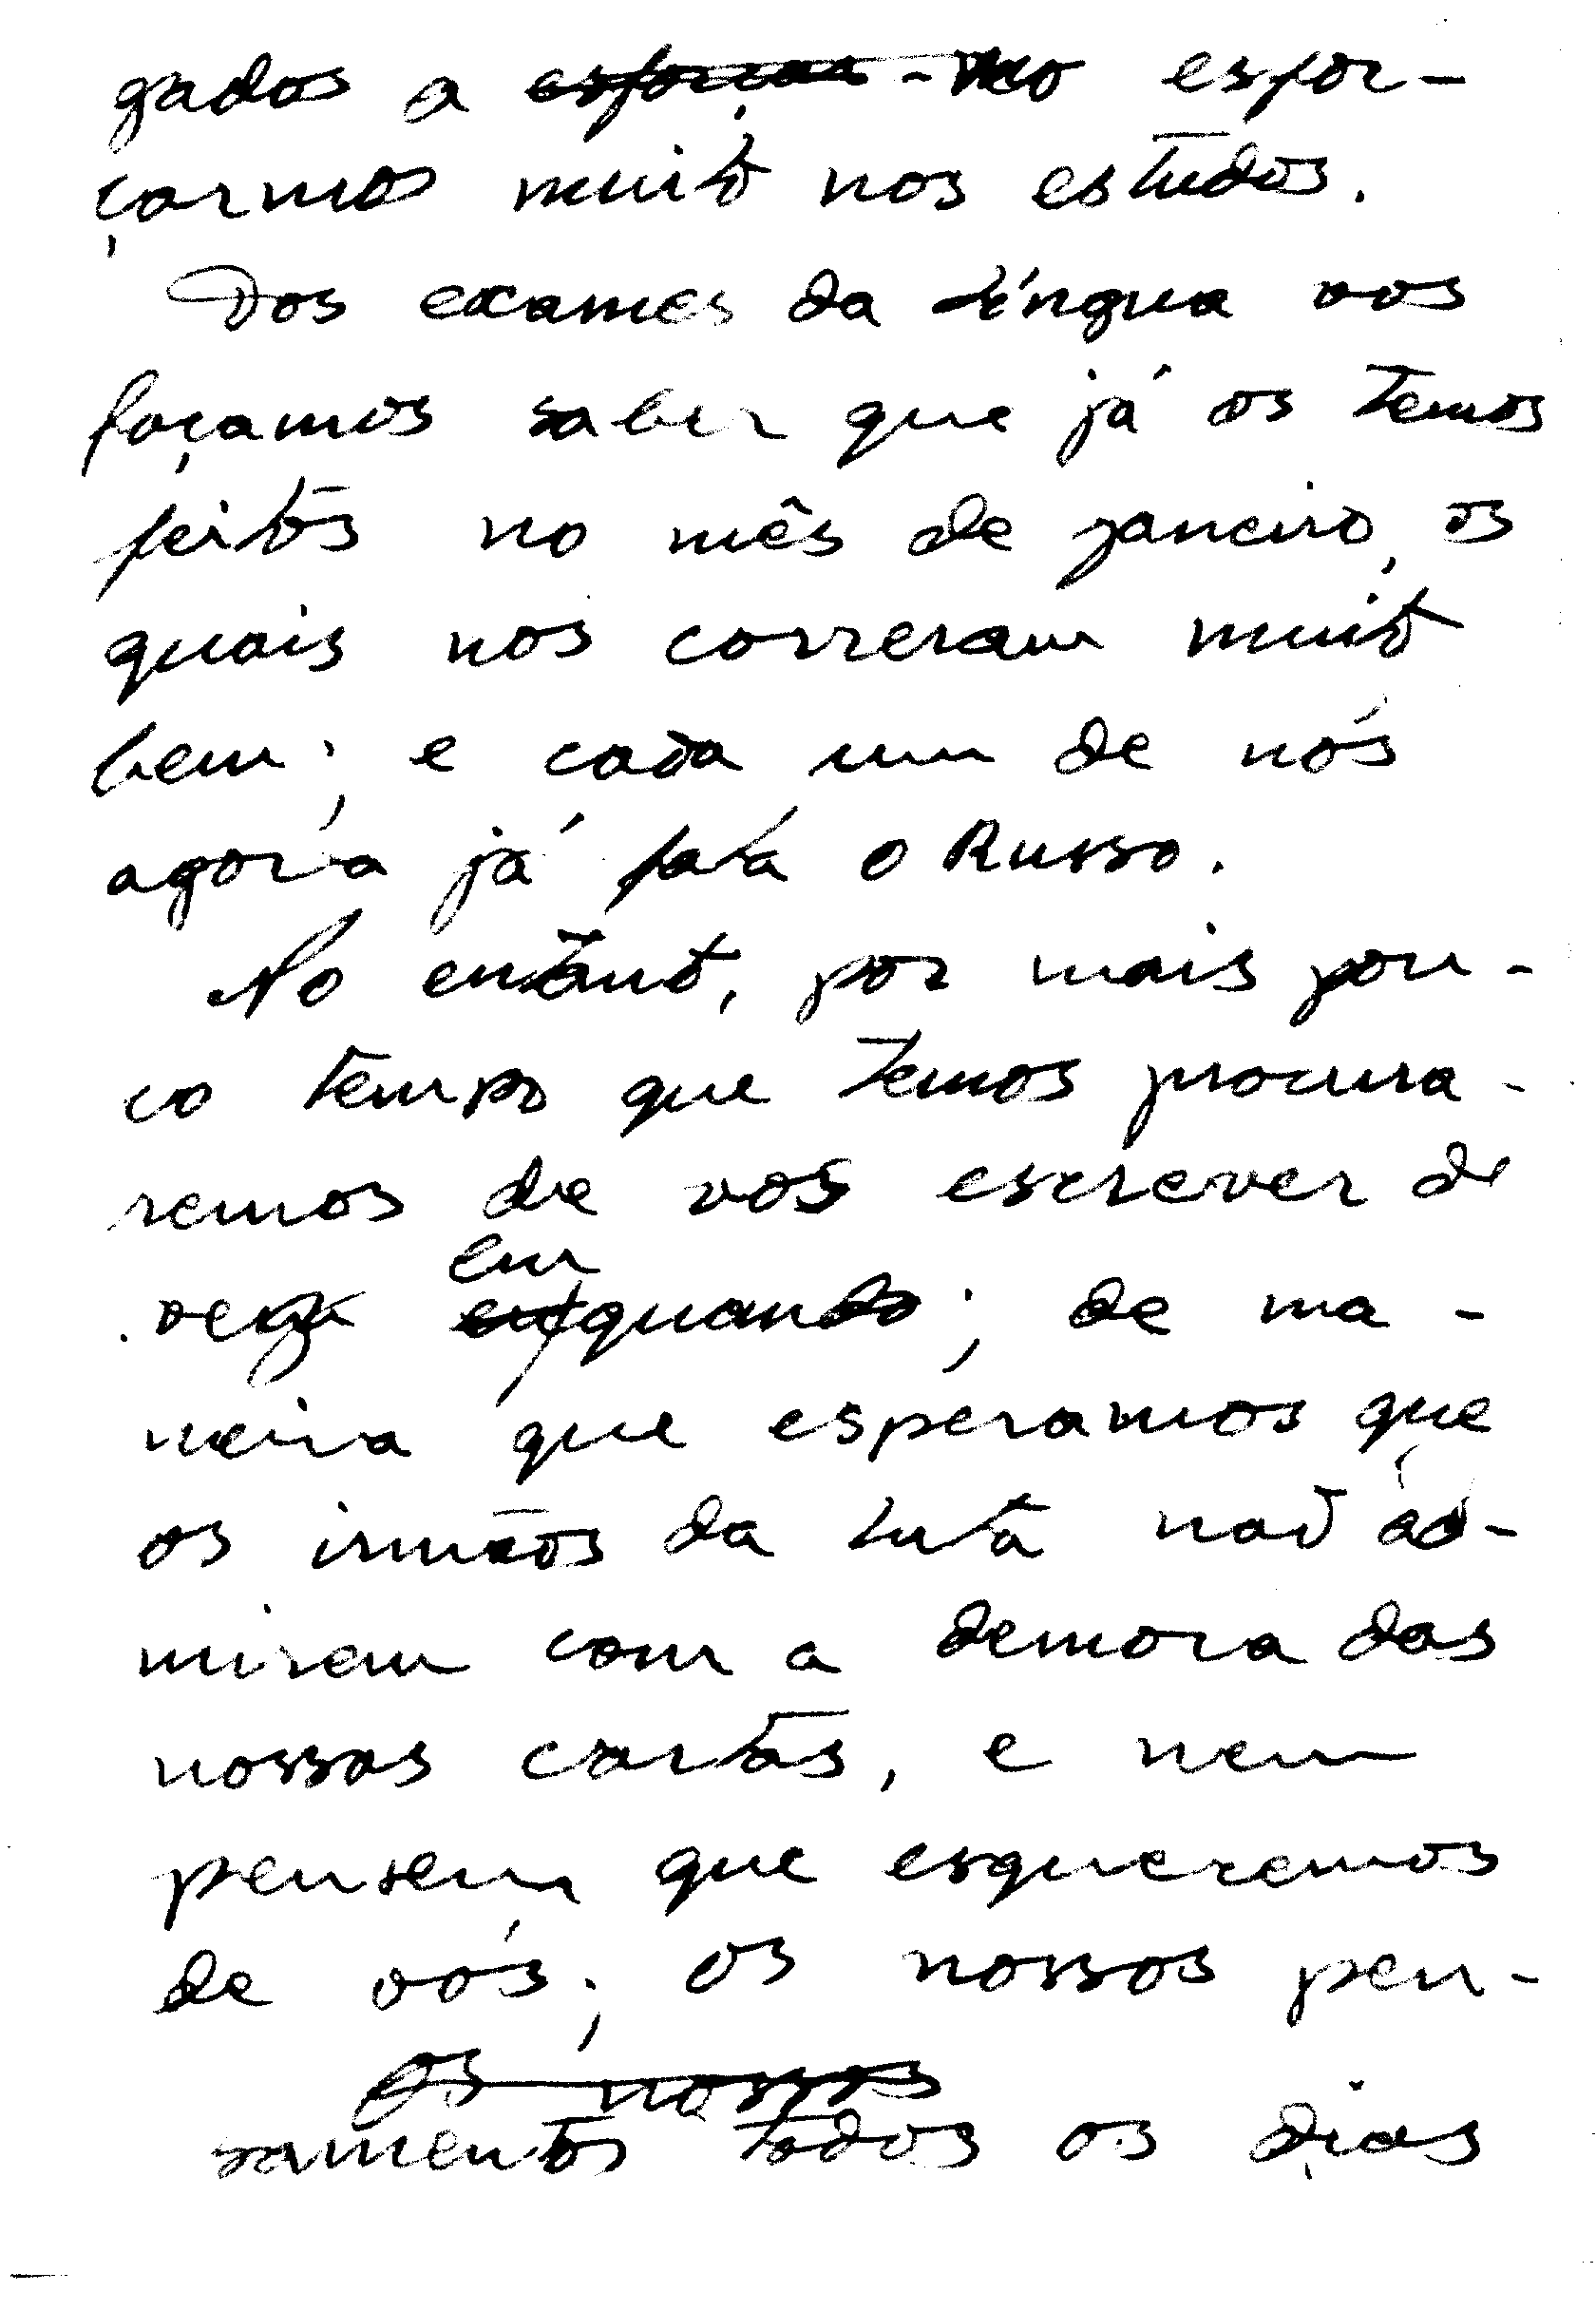 gados a esforçar-mo esfor-
çarmos muito nos estudos.
Dos exames da língua vos
façamos saber que já os temos
feitos no mês de janeiro, os
quais nos correram muito
bem; e cada um de nós
agora já fala o Russo.
No entanto, por mais pou-
co tempo que temos procura-
remos de vos escrever de
em
vez quando; de ma-
neira que esperamos que
os irmãos da luta não ad-
mirem com a demora das
nossas cartas, e nem
pensem que esqueremos
de vós; os nossos pen-
os nossos
samentos todos os dias